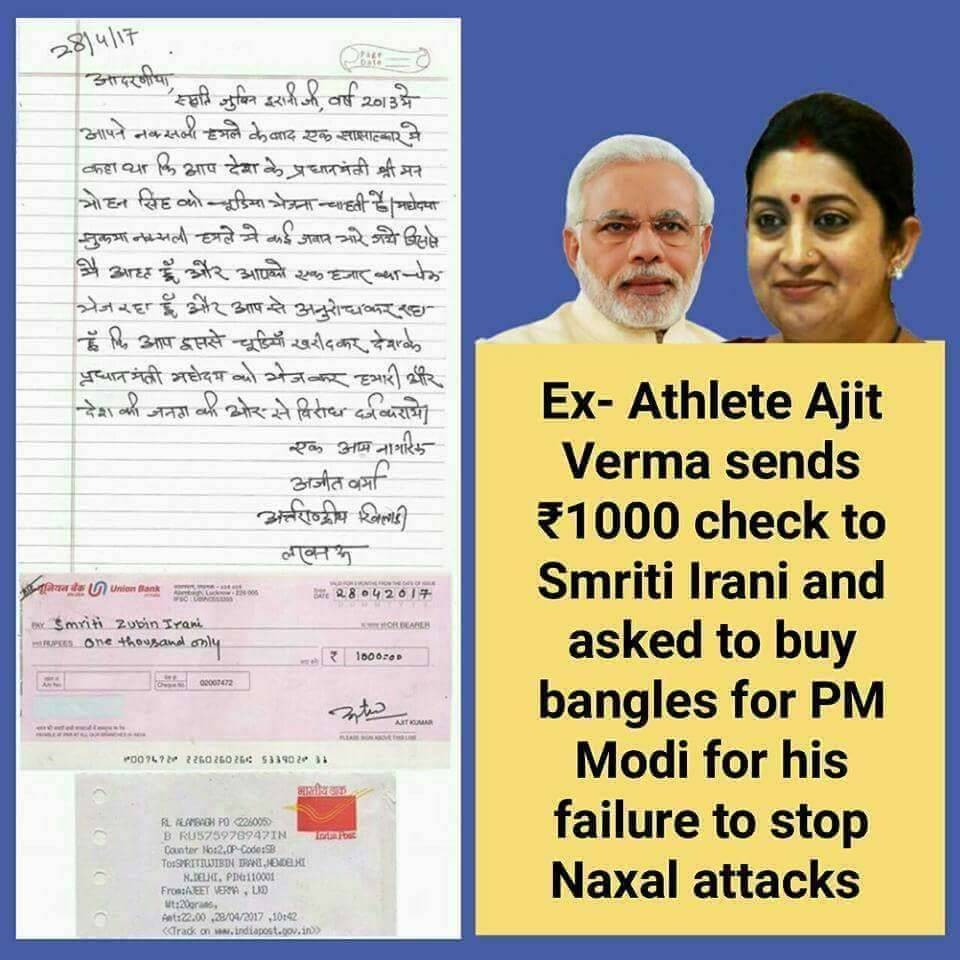 28/4/17
Page
Date
आदरणीया,
स्मृति जुबिन इरानी जी, वर्ष 2013 मे
आपने नक्सली हमले के बाद एक साक्षात्कार मे
कहा था कि आप देश के प्रधानमंत्री श्री मन
मोहन सिंह को चूडिया भेजना चाहती हैं। महोदया
सुकमा नक्सली हमले मे कई जवान मारे गये जिससे
मै आहत हूँ और आपको एक हजार का चेक
भेज रहा हूँ और आप से अनुरोध कर रहा
हूँ कि आप इससे चूडियाँ खरीदकर देश के
प्रधानमंत्री महोदय को भेजकर हमारी और
देश की जनता की ओर से विरोध दर्ज कराये।
एक आम नागरिक
अजीत वर्मा
अर्न्तराष्ट्रीय खिलाडी
लखनऊ
यूनियन बैंक Union Bank
Alambagh, Lucknow - 226 005
VALID FOR 3 MONTHS FROM THE DATE OF ISSUE
DATE 28042017
PAY Smriti Zubin Irani OR BEARER
RUPEES One thousand only
₹ 1000=00
Cheque No. 02007472
AJIT KUMAR
PLEASE SIGN ABOVE THIS LINE
PAYABLE AT PAR AT ALL OUR BRANCHES IN INDIA
भारतीय डाक
India Post
RL ALAMBAGH PO <226005>
B RU575978947IN
Counter No:2,OP-Code:SB
To:SMRITIUJIBIN IRANI,NEWDELHI
N.DELHI, PIN:110001
From:AJEET VERMA , LKO
Wt:20grams,
Amt:22.00 ,28/04/2017 ,10:42
<<Track on www.indiapost.gov.in>>
Ex- Athlete Ajit
Verma sends
₹1000 check to
Smriti Irani and
asked to buy
bangles for PM
Modi for his
failure to stop
Naxal attacks